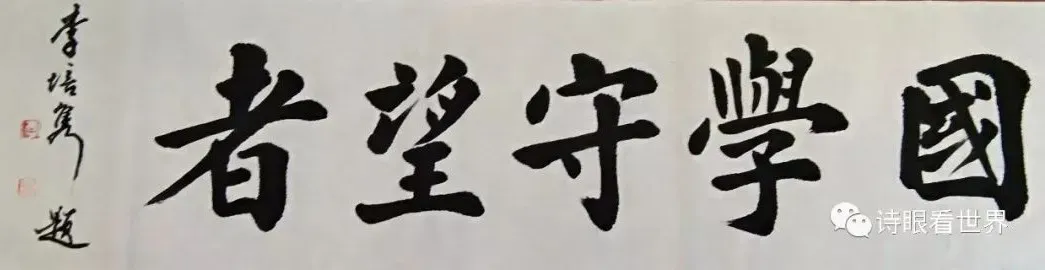 國學守望者
李培隽 题
诗眼看世界